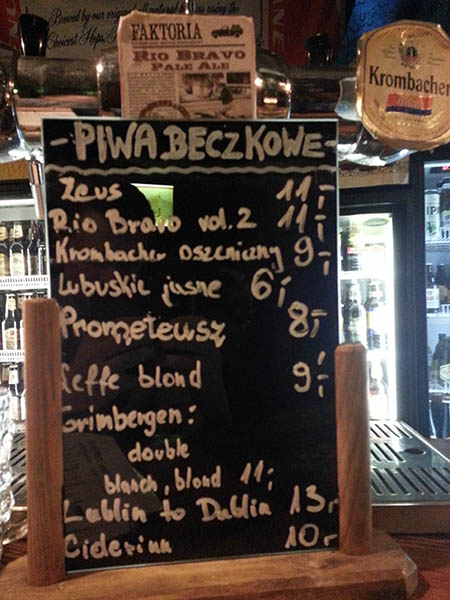 Brewed by our original
Choicest Hops,
FAKTORIA
RIO BRAVO
PALE ALE
Krombacher
- PIWA BECZKOWE -
Zeus 11,-
Rio Bravo vol. 2 11,-
Krombacher pszeniczny 9,-
Lubuskie jasne 6,-
Prometeusz 8,-
Leffe blond 9,-
Grimbergen:
double
blanch, blond 11,-
Lublin to Dublin 13,-